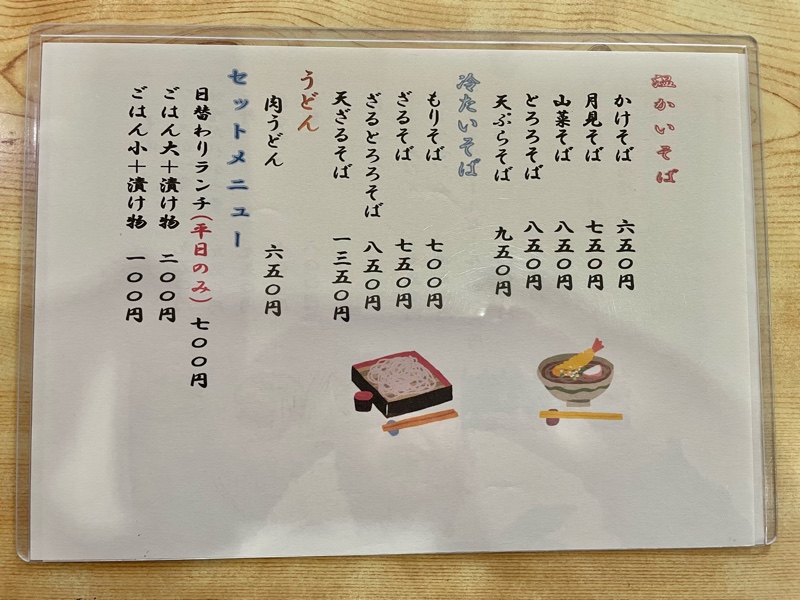 温かいそば
かけそば 六五〇円
月見そば 七五〇円
山菜そば 八五〇円
とろろそば 八五〇円
天ぷらそば 九五〇円
冷たいそば
もりそば 七〇〇円
ざるそば 七五〇円
ざるとろろそば 八五〇円
天ざるそば 一三五〇円
うどん
肉うどん 六五〇円
セットメニュー
日替わりランチ(平日のみ) 七〇〇円
ごはん大+漬け物 二〇〇円
ごはん小+漬け物 一〇〇円